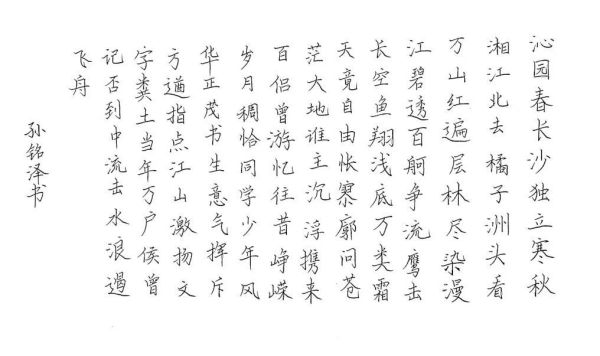 沁园春长沙独立寒秋
湘江北去橘子洲头看
万山红遍层林尽染漫
江碧透百舸争流鹰击
长空鱼翔浅底万类霜
天竟自由怅寥廓问苍
茫大地谁主沉浮携来
百侣曾游忆往昔峥嵘
岁月稠恰同学少年风
华正茂书生意气挥斥
方遒指点江山激扬文
字粪土当年万户侯曾
记否到中流击水浪遏
飞舟
孙铭泽书